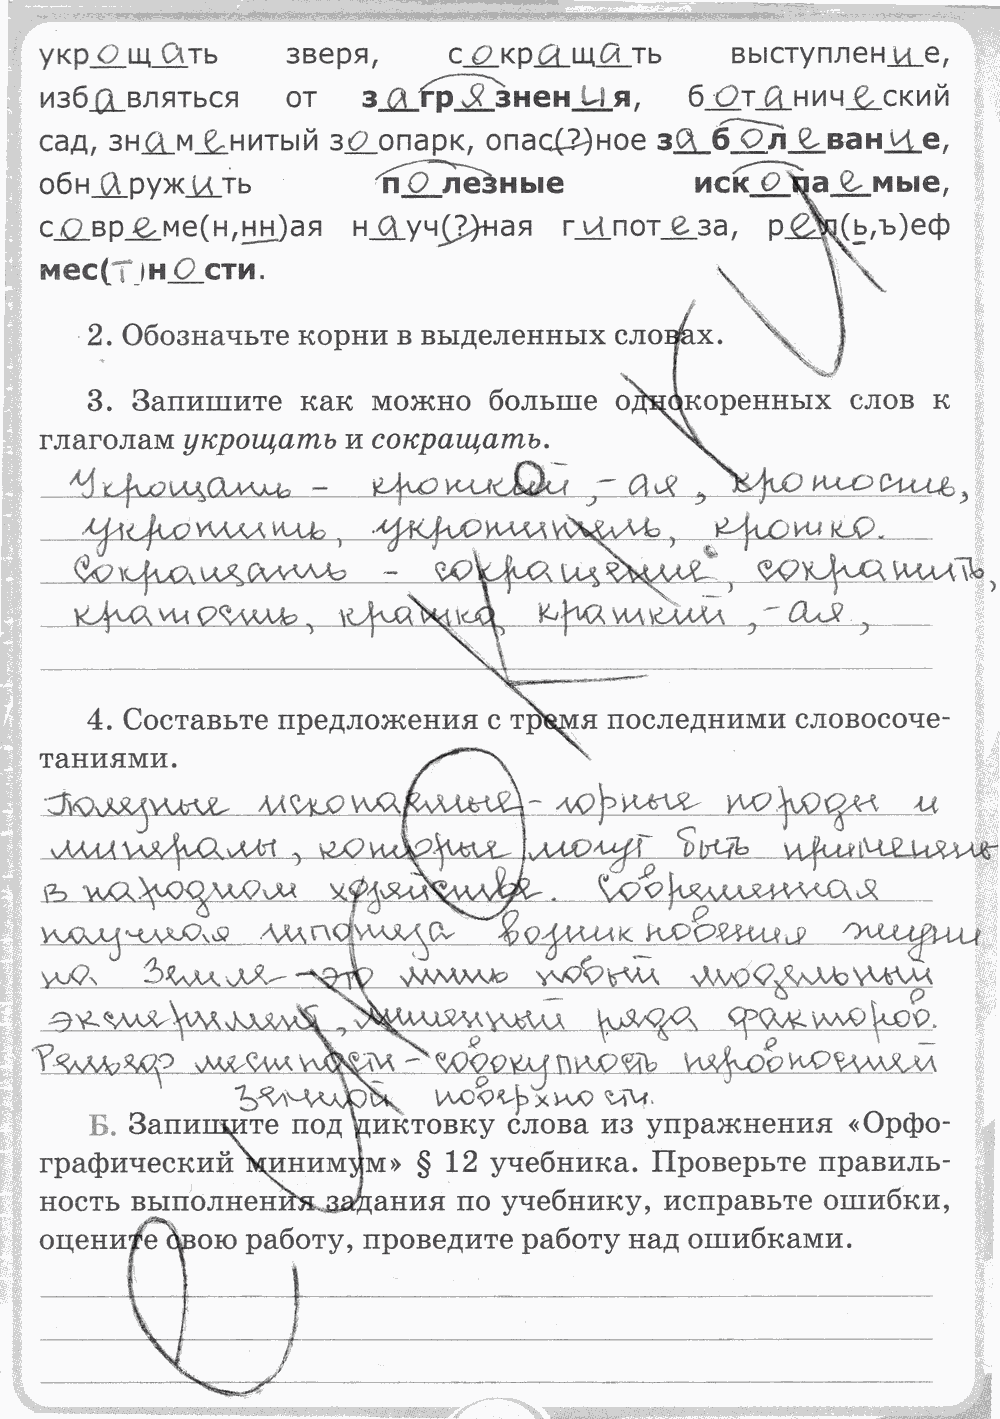 укрощать зверя, сокращать выступление,
избавляться от загрязнения, ботанический
сад, знаменитый зоопарк, опас(?)ное заболевание,
обнаружить полезные ископаемые,
современе(н,нн)ая науч(?)ная гипотеза, рел(ь,ъ)еф
мес(т)ности.
2. Обозначьте корни в выделенных словах.
3. Запишите как можно больше однокоренных слов к
глаголам укрощать и сокращать.
Укрощать – кроткий, -ая, кротость,
укротить, укротитель, кротко.
Сокращать – сокращение, сократить,
краткость, кратко, краткий, -ая,
4. Составьте предложения с тремя последними словосоче-
таниями.
Полезные ископаемые – горные породы и
минералы, которые могут быть применены
в народном хозяйстве. Современная
научная гипотеза возникновения жизни
на Земле – это лишь новый модельный
эксперимент, лишенный ряда факторов.
Рельеф местности – совокупность неровностей
Земной поверхности.
Б. Запишите под диктовку слова из упражнения «Орфо-
графический минимум» § 12 учебника. Проверьте правиль-
ность выполнения задания по учебнику, исправьте ошибки,
оцените свою работу, проведите работу над ошибками.